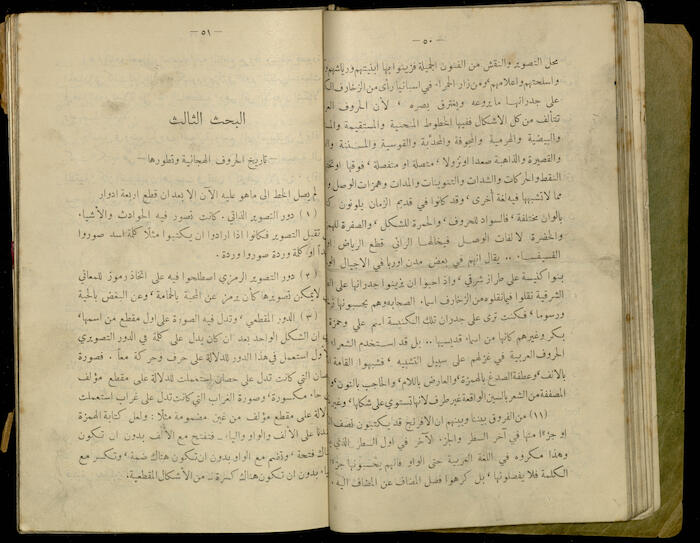 — ٥٠ —
محل التصوير والنقش من الفنون الجميلة فزينوا بها ابنيتهم ورياشهم
واسلحتهم واعلامهم، ومن زار الحمراء في اسبانيا رأى من الزخارف
على جدرانها ما يروعه ويغترق بصره، لأن الحروف
تتألف من كل الاشكال ففيها الخطوط المنحنية والمستقيمة
والبيضية والهرمية والمجوفة والمحدّبة والقوسية والمسننة
والقصيرة والذاهبة صعدا او نزولا، متصلة او منفصلة، فوقها او
النقط والحركات والشدات والتنوينات والمدات وهمزات الوصل
مما لا تشبهها فيه لغة أخرى، وقد كانوا في قديم الزمان يلونون
بالوان مختلفة، فالسواد للحروف، والحمرة للشكل، والصفرة
والخضرة لالفات الوصل فيخالها الرائي قطع الرياض او
الفسيفسا.. يقال انهم في بعض مدن اوربا في الاجيال
بنوا كنيسة على طراز شرقي، واذ احبوا ان يزينوا جدرانها على
الشرقية نقلوا فيما نقلوه من الزخارف اسماء الصحابه وهم يحسبونها
ورسوما، فكنت ترى على جدران تلك الكنيسة اسم علي وحمزة
بكر وغيرهم كانها من اسماء قديسيها.. بل قد استخدم الشعراء
الحروف العربية في غزلهم على سبيل التشبيه، فشبهوا القامة
بالالف، وعطفة الصدغ بالهمزة، والعارض باللام، والحاجب بالنون،
المصففة من الشعر بالسين الواقعة غير طرف لانها تستوي على شكلها، وغير
(١١) من الفروق بيننا وبينهم ان الافرنج قد يكتبون نصف
او جزءا منها في آخر السطر والجزء الآخر في اول السطر الذي
وهذا مكروه في اللغة العربية حتى الواو فانهم يحسبونها جزءا
الكلمة فلا يفصلونها، بل كرهوا فصل المضاف عن المضاف اليه.
— ٥١ —
البحث الثالث
— تاريخ الحروف الهجائية وتطورها —
لم يصل الخط الى ما هو عليه الآن الا بعد ان قطع اربعة ادوار
(١) دور التصوير الذاتي. كانت تصور فيه الحوادث والأشياء.
تقبل التصوير فكانوا اذا ارادوا ان يكتبوا مثلًا كلمة اسد صوروا
او كلمة وردة صوروا وردة.
(٢) دور التصوير الرمزي اصطلحوا فيه على اتخاذ رموز للمعاني
لا يمكن تصويرها كأن يرمز عن المحبة بالحمامة، وعن البغض بالحية
(٣) الدور المقطعي، وتدل فيه الصورة على اول مقطع من اسمها،
ان الشكل الواحد بعد ان كان يدل على كلمة في الدور التصويري
استعمل في هذا الدور للدلالة على حرف وحركة معاً. فصورة
التي كانت تدل على حصان استعملت للدلالة على مقطع مؤلف
حاء مكسورة، وصورة الغراب التي كانت تدل على غراب استعملت
على مقطع مؤلف من غين مضمومة مثلًا: ولعل كتابة الهمزة
على الألف والواو والياء — فتفتح مع الألف بدون ان تكون
فتحة، وتضم مع الواو بدون ان تكون هناك ضمة، وتكسر مع
بدون ان تكون هناك كسرة — من الأشكال المقطعية.